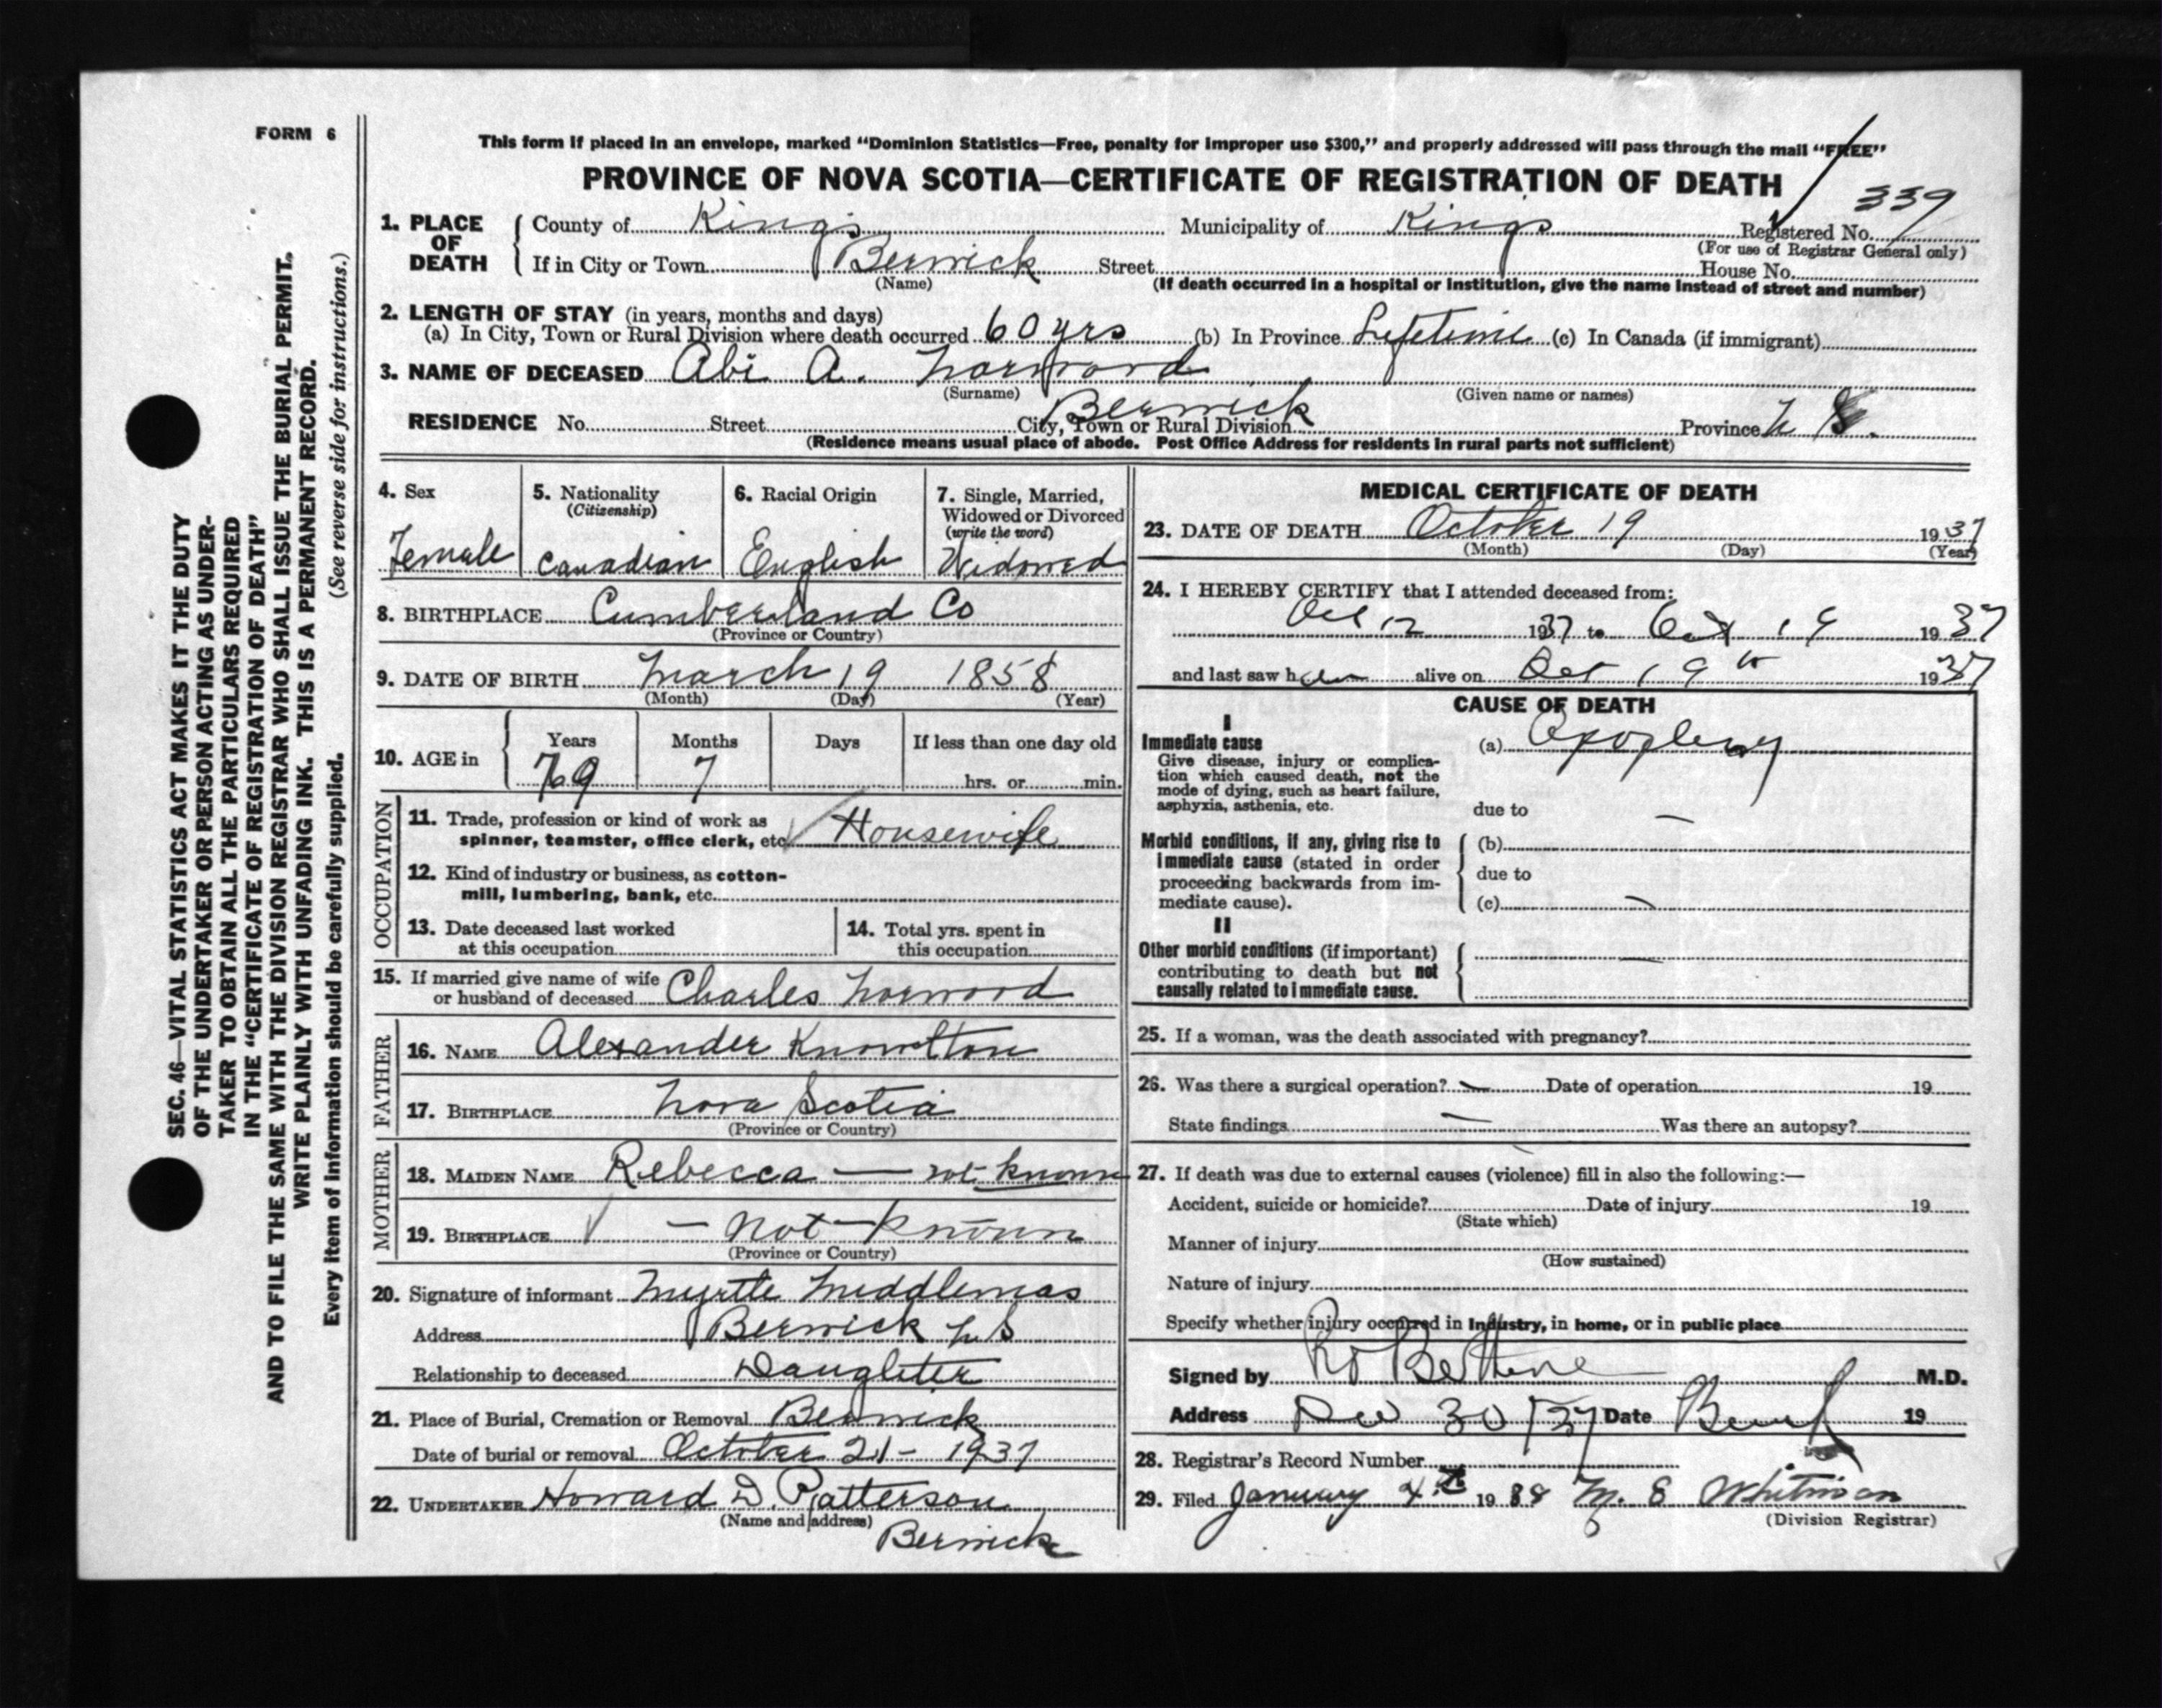 FORM 6
This form if placed in an envelope, marked "Dominion Statistics—Free, penalty for improper use $300," and properly addressed will pass through the mail "FREE"
PROVINCE OF NOVA SCOTIA—CERTIFICATE OF REGISTRATION OF DEATH
339
1. PLACE OF DEATH
County of Kings Municipality of Kings Registered No.
(For use of Registrar General only)
If in City or Town Berwick Street House No.
(Name) (If death occurred in a hospital or institution, give the name instead of street and number)
2. LENGTH OF STAY (in years, months and days)
(a) In City, Town or Rural Division where death occurred 60 yrs (b) In Province Lifetime (c) In Canada (if immigrant)
3. NAME OF DECEASED Abi A. Norwood
(Surname) (Given name or names)
RESIDENCE No. Street City, Town or Rural Division Berwick Province N S.
(Residence means usual place of abode. Post Office Address for residents in rural parts not sufficient)
SEC. 46—VITAL STATISTICS ACT MAKES IT THE DUTY
OF THE UNDERTAKER OR PERSON ACTING AS UNDER-
TAKER TO OBTAIN ALL THE PARTICULARS REQUIRED
IN THE "CERTIFICATE OF REGISTRATION OF DEATH"
AND TO FILE THE SAME WITH THE DIVISION REGISTRAR WHO SHALL ISSUE THE BURIAL PERMIT.
WRITE PLAINLY WITH UNFADING INK. THIS IS A PERMANENT RECORD.
Every item of information should be carefully supplied. (See reverse side for instructions.)
4. Sex
Female
5. Nationality
(Citizenship)
Canadian
6. Racial Origin
English
7. Single, Married,
Widowed or Divorced
(write the word)
Widowed
8. BIRTHPLACE Cumberland Co
(Province or Country)
9. DATE OF BIRTH March 19 1858
(Month) (Day) (Year)
10. AGE in
Years Months Days If less than one day old
79 7 hrs. or min.
OCCUPATION
11. Trade, profession or kind of work as
spinner, teamster, office clerk, etc. Housewife
12. Kind of industry or business, as cotton-
mill, lumbering, bank, etc.
13. Date deceased last worked
at this occupation
14. Total yrs. spent in
this occupation
15. If married give name of wife
or husband of deceased Charles Norwood
FATHER
16. NAME Alexander Knowlton
17. BIRTHPLACE Nova Scotia
(Province or Country)
MOTHER
18. MAIDEN NAME Rebecca — not known
19. BIRTHPLACE — not known
(Province or Country)
20. Signature of informant Myrtle Middlemas
Address Berwick N S
Relationship to deceased Daughter
21. Place of Burial, Cremation or Removal Berwick
Date of burial or removal October 21 - 1937
22. UNDERTAKER Howard D. Patterson
(Name and address)
Berwick
MEDICAL CERTIFICATE OF DEATH
23. DATE OF DEATH October 19 1937
(Month) (Day) (Year)
24. I HEREBY CERTIFY that I attended deceased from:
Oct 12 1937 to Oct 19 1937
and last saw her alive on Oct 19th 1937
CAUSE OF DEATH
I
Immediate cause
Give disease, injury or complica-
tion which caused death, not the
mode of dying, such as heart failure,
asphyxia, asthenia, etc.
(a) Apoplexy
due to —
Morbid conditions, if any, giving rise to
immediate cause (stated in order
proceeding backwards from im-
mediate cause).
(b)
due to
(c) —
II
Other morbid conditions (if important)
contributing to death but not
causally related to immediate cause.
—
25. If a woman, was the death associated with pregnancy?
26. Was there a surgical operation? — Date of operation 19
State findings — Was there an autopsy?
27. If death was due to external causes (violence) fill in also the following:—
Accident, suicide or homicide? Date of injury 19
(State which)
Manner of injury
(How sustained)
Nature of injury
Specify whether injury occurred in Industry, in home, or in public place
Signed by M.D.
Address Dec 30/37 Date 19
28. Registrar's Record Number
29. Filed January 4th 1938 M. E Whitman
(Division Registrar)